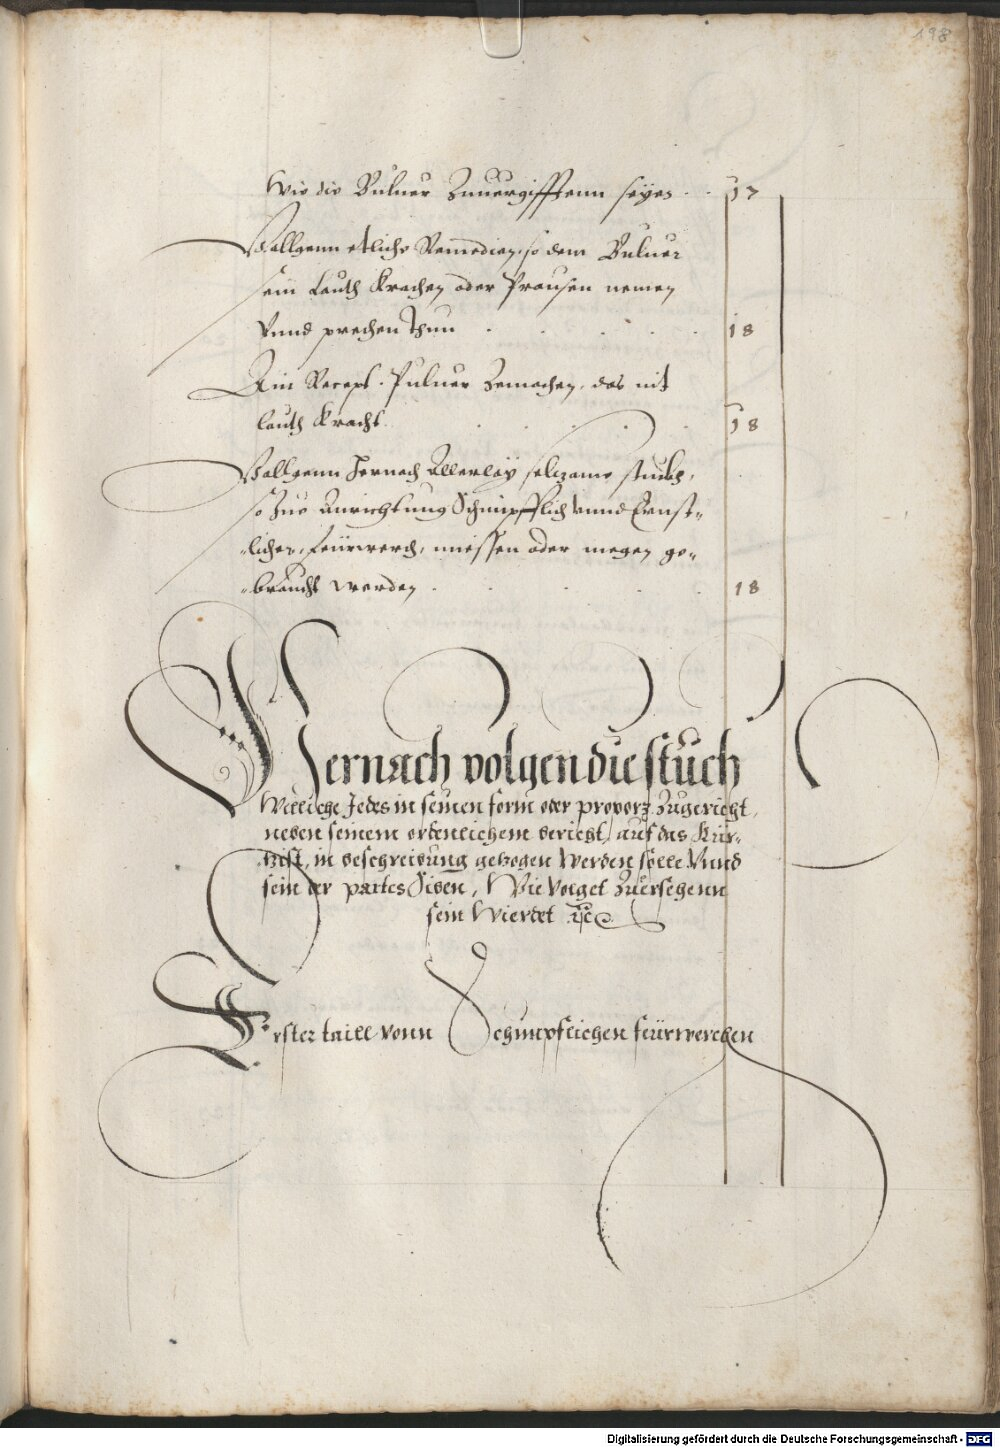 198
Wie die Puluer Zuuergifftenn seÿen . . 17
Vollgenn etliche Remedien, so dem Puluer
sein lauth Krachen oder Prausen nemen
Vnnd prechen thun . . . . . 18
Ain Recept. Puluer Zemachen, das nit
lauth Kracht. . . . . . 18
Vollgenn Hernach Allerlaÿ selczame stuckh,
so Zue Anrichtung Schimpfflich vnnd Ernst-
licher, feürwerch, miessen oder megen ge-
braucht werden . . . . . 18
Hernach volgen die stuch
Welliche Jedes in seinen form oder proporz Zugericht,
neben seinem ordenlichem bericht, auf das Kür-
tzist, in beschreibung gezogen Werden solle Vnnd
sein der parttes Siben, Wie volget Zuersehenn
sein Wierdet
Erster taill vonn Schimpflichen feürwerchen
Digitalisierung gefördert durch die Deutsche Forschungsgemeinschaft - DFG